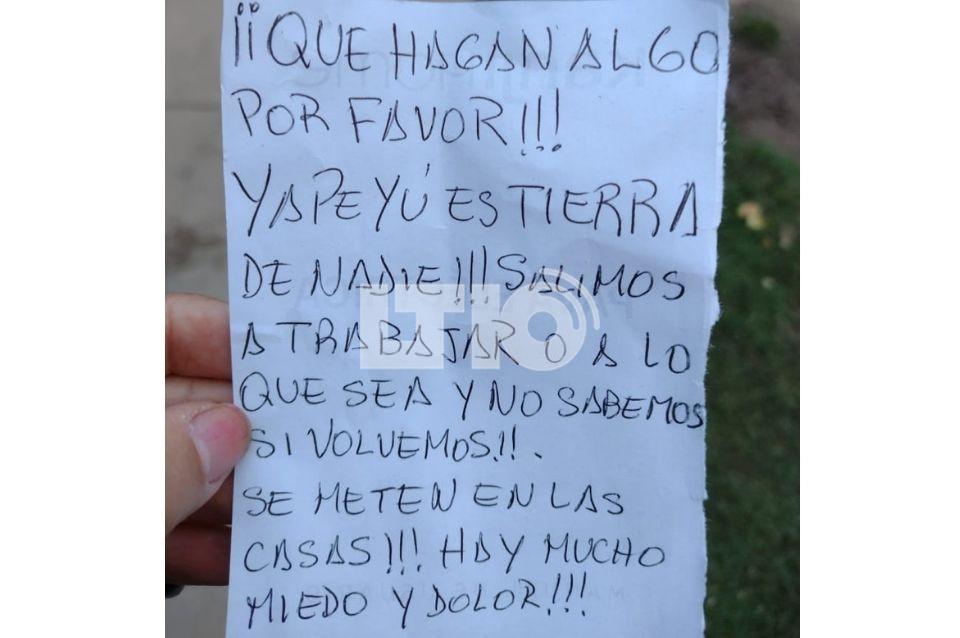 ¡¡QUE HAGAN ALGO
POR FAVOR!!!
YAPEYÚ ES TIERRA
DE NADIE!!! SALIMOS
A TRABAJAR O A LO
QUE SEA Y NO SABEMOS
SI VOLVEMOS!!.
SE METEN EN LAS
CASAS!!! HAY MUCHO
MIEDO Y DOLOR!!!
LT10